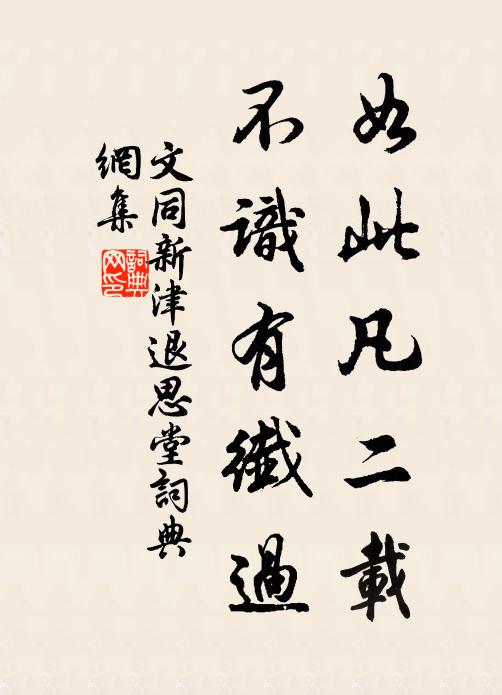 如此凡二載
不識有纖過
文同新津退思堂詞典
網集
詞典網印